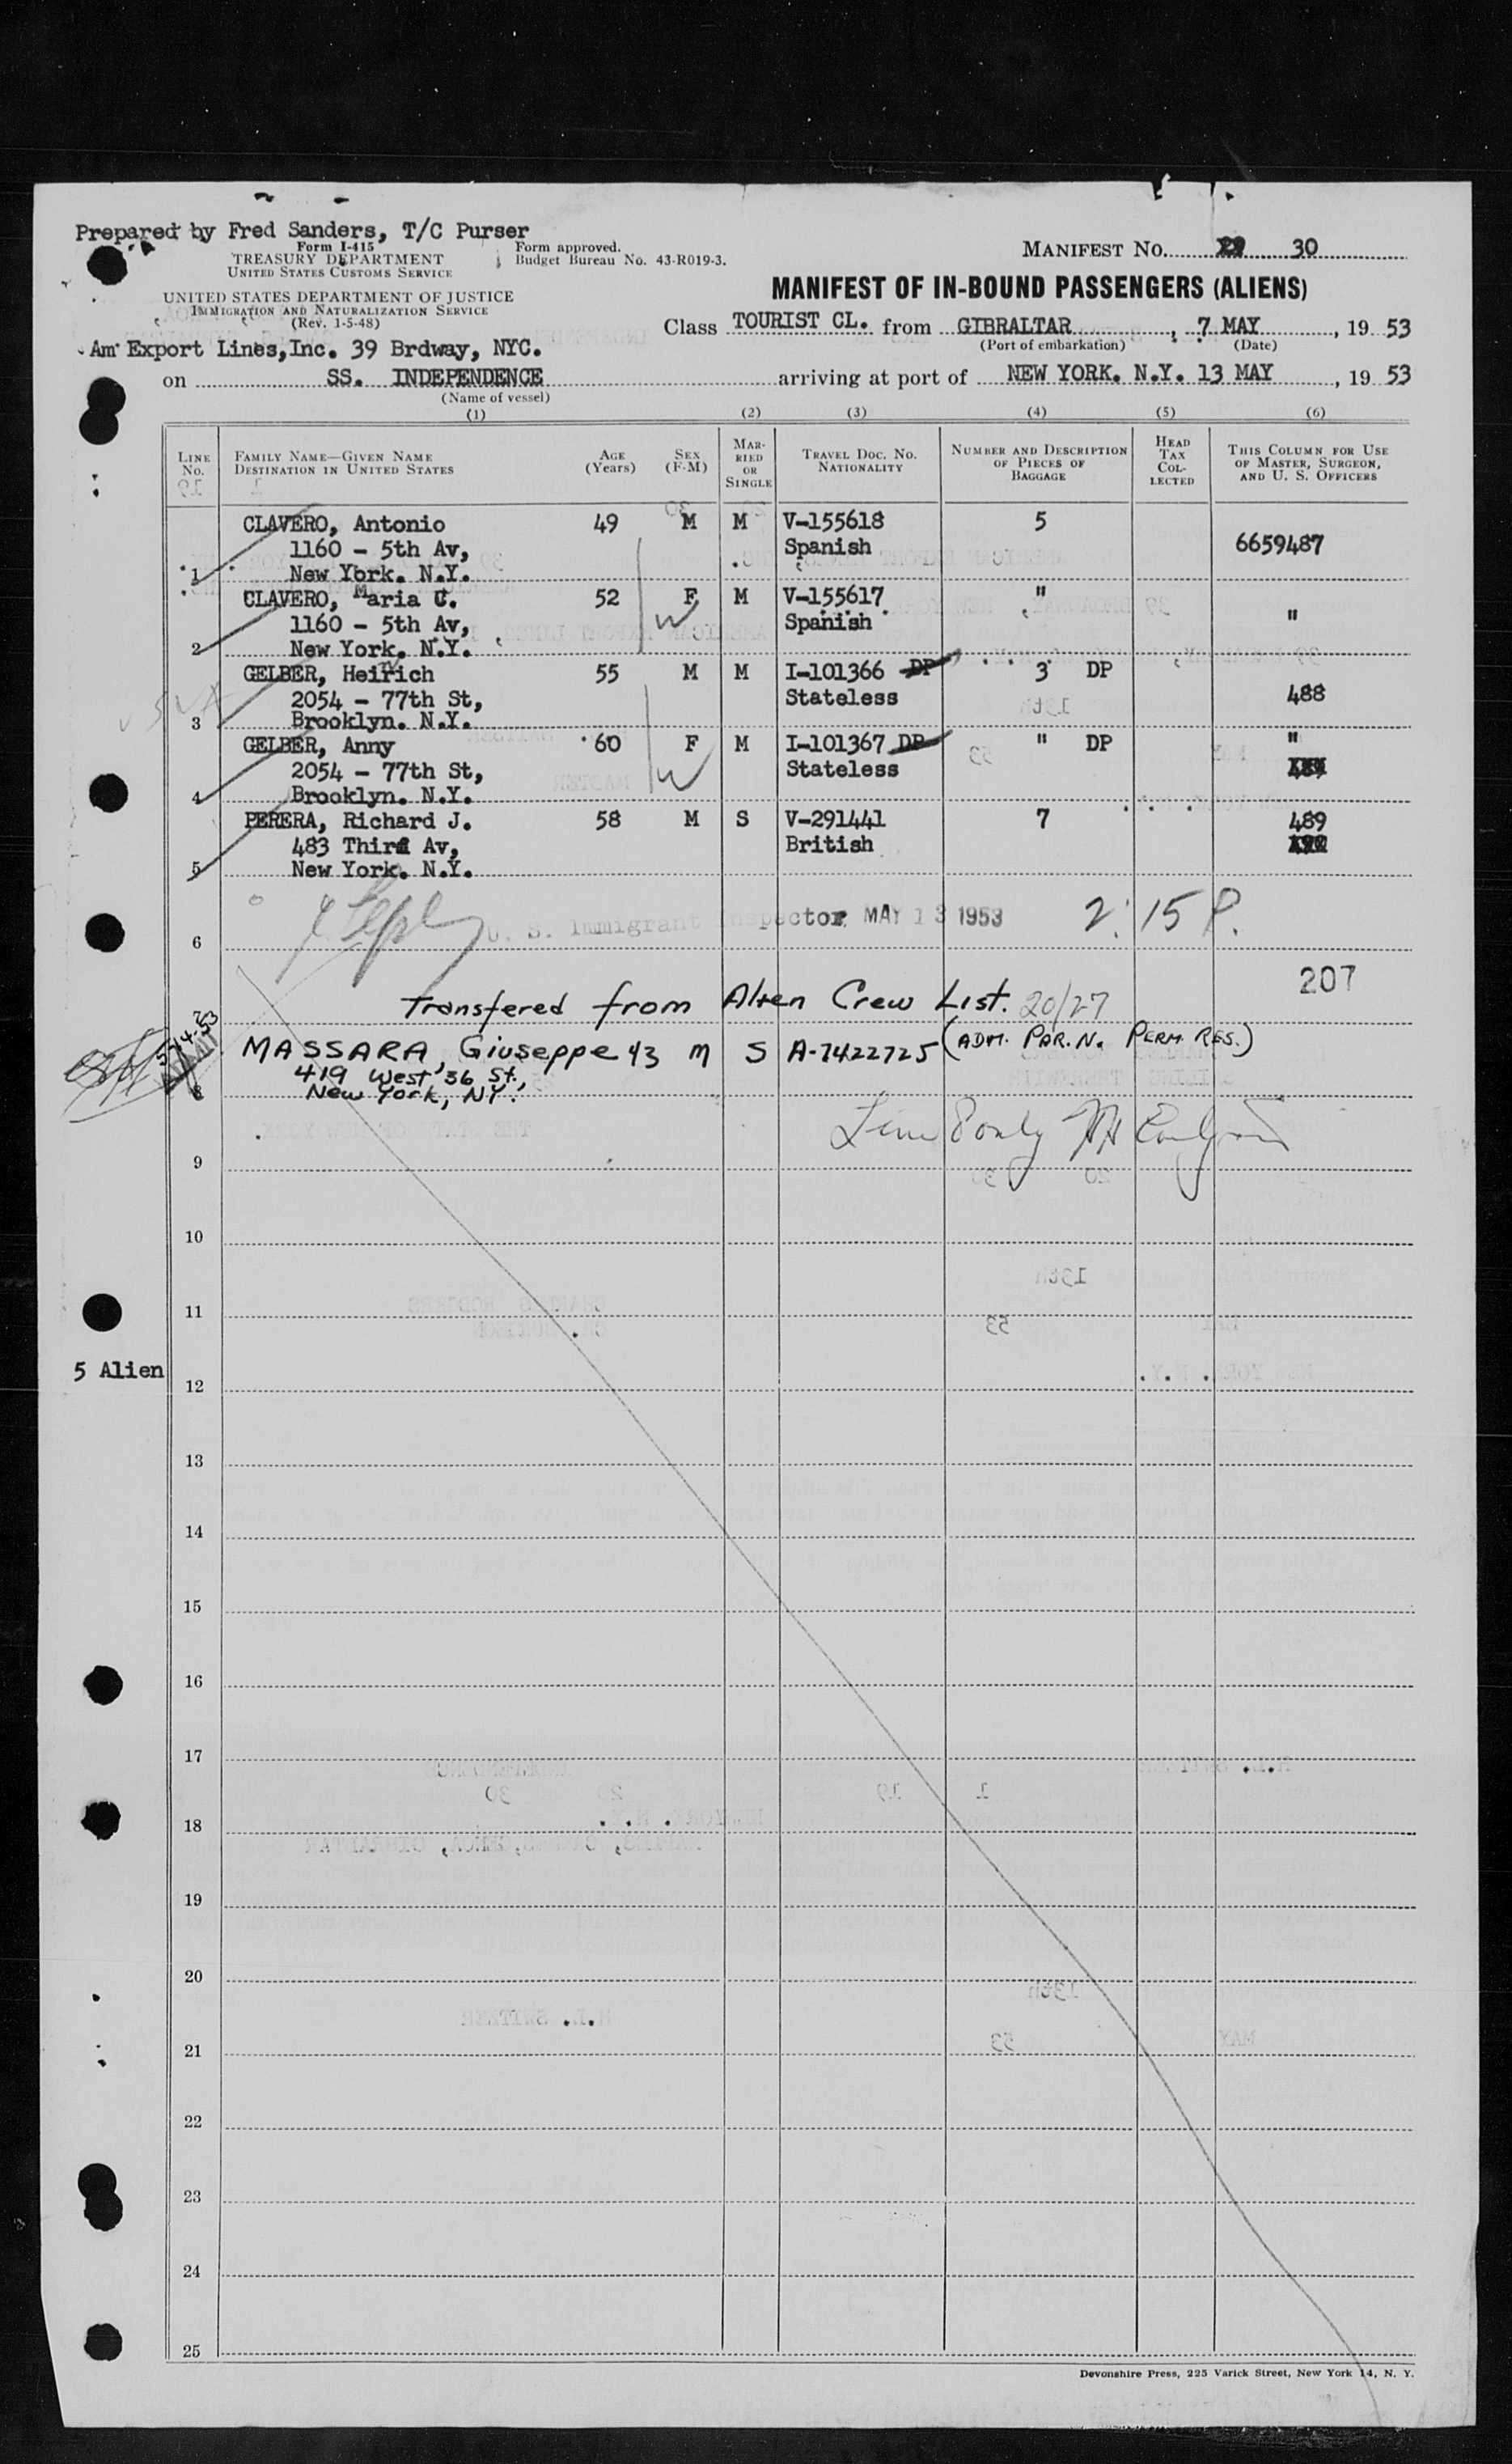 Prepared by Fred Sanders, T/C Purser
Form I-415
TREASURY DEPARTMENT
UNITED STATES CUSTOMS SERVICE
Form approved.
Budget Bureau No. 43-R019-3.
MANIFEST NO. 30
UNITED STATES DEPARTMENT OF JUSTICE
IMMIGRATION AND NATURALIZATION SERVICE
(Rev. 1-5-48)
MANIFEST OF IN-BOUND PASSENGERS (ALIENS)
Class TOURIST CL. from GIBRALTAR, 7 MAY, 19 53
(Port of embarkation) (Date)
Am Export Lines,Inc. 39 Brdway, NYC.
on SS. INDEPENDENCE arriving at port of NEW YORK. N.Y. 13 MAY, 19 53
(Name of vessel)
(1) (2) (3) (4) (5) (6)
LINE NO. FAMILY NAME—GIVEN NAME DESTINATION IN UNITED STATES AGE (Years) SEX (F-M) MARRIED OR SINGLE TRAVEL DOC. NO. NATIONALITY NUMBER AND DESCRIPTION OF PIECES OF BAGGAGE HEAD TAX COLLECTED THIS COLUMN FOR USE OF MASTER, SURGEON, AND U. S. OFFICERS
CLAVERO, Antonio 49 M M V-155618 5
1160 - 5th Av, Spanish 6659487
1 New York. N.Y.
CLAVERO, Maria C. 52 F M V-155617 "
1160 - 5th Av, W Spanish "
2 New York. N.Y.
GELBER, Heinrich 55 M M I-101366 DP 3 DP
2054 - 77th St, Stateless 488
3 Brooklyn. N.Y.
GELBER, Anny 60 F M I-101367 DP " DP "
2054 - 77th St, W Stateless
4 Brooklyn. N.Y.
PERERA, Richard J. 58 M S V-291441 7 489
483 Third Av, British
5 New York. N.Y.
U. S. Immigrant Inspector MAY 13 1953 2:15 P.
6
207
Transfered from Alien Crew List. 20/27
7
MASSARA, Giuseppe 43 M S A-7422725 (ADM. PAR. N. PERM. RES.)
419 West 36 St.,
8 New York, NY.
Line 8 only
9
10
11
5 Alien
12
13
14
15
16
17
18
19
20
21
22
23
24
25
Devonshire Press, 225 Varick Street, New York 14, N. Y.